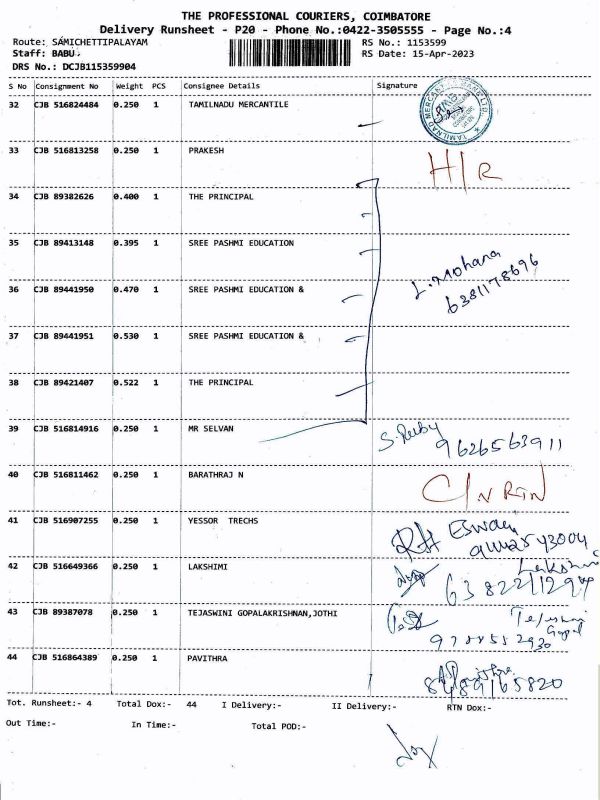 THE PROFESSIONAL COURIERS, COIMBATORE
Delivery Runsheet - P20 - Phone No.:0422-3505555 - Page No.:4
Route: SAMICHETTIPALAYAM RS No.: 1153599
Staff: BABU. RS Date: 15-Apr-2023
DRS No.: DCJB115359904
S No Consignment No Weight PCS Consignee Details Signature
32 CJB 516824484 0.250 1 TAMILNADU MERCANTILE
33 CJB 516813258 0.250 1 PRAKESH H/R
34 CJB 89382626 0.400 1 THE PRINCIPAL
35 CJB 89413148 0.395 1 SREE PASHMI EDUCATION
L. Mohana
36 CJB 89441950 0.470 1 SREE PASHMI EDUCATION &
6381178696
37 CJB 89441951 0.530 1 SREE PASHMI EDUCATION &
38 CJB 89421407 0.522 1 THE PRINCIPAL
39 CJB 516814916 0.250 1 MR SELVAN 9626563911
40 CJB 516811462 0.250 1 BARATHRAJ N
41 CJB 516907255 0.250 1 YESSOR TRECHS
42 CJB 516649366 0.250 1 LAKSHIMI
43 CJB 89387078 0.250 1 TEJASWINI GOPALAKRISHNAN,JOTHI
44 CJB 516864389 0.250 1 PAVITHRA
Tot. Runsheet:- 4 Total Dox:- 44 I Delivery:- II Delivery:- RTN Dox:-
Out Time:- In Time:- Total POD:-